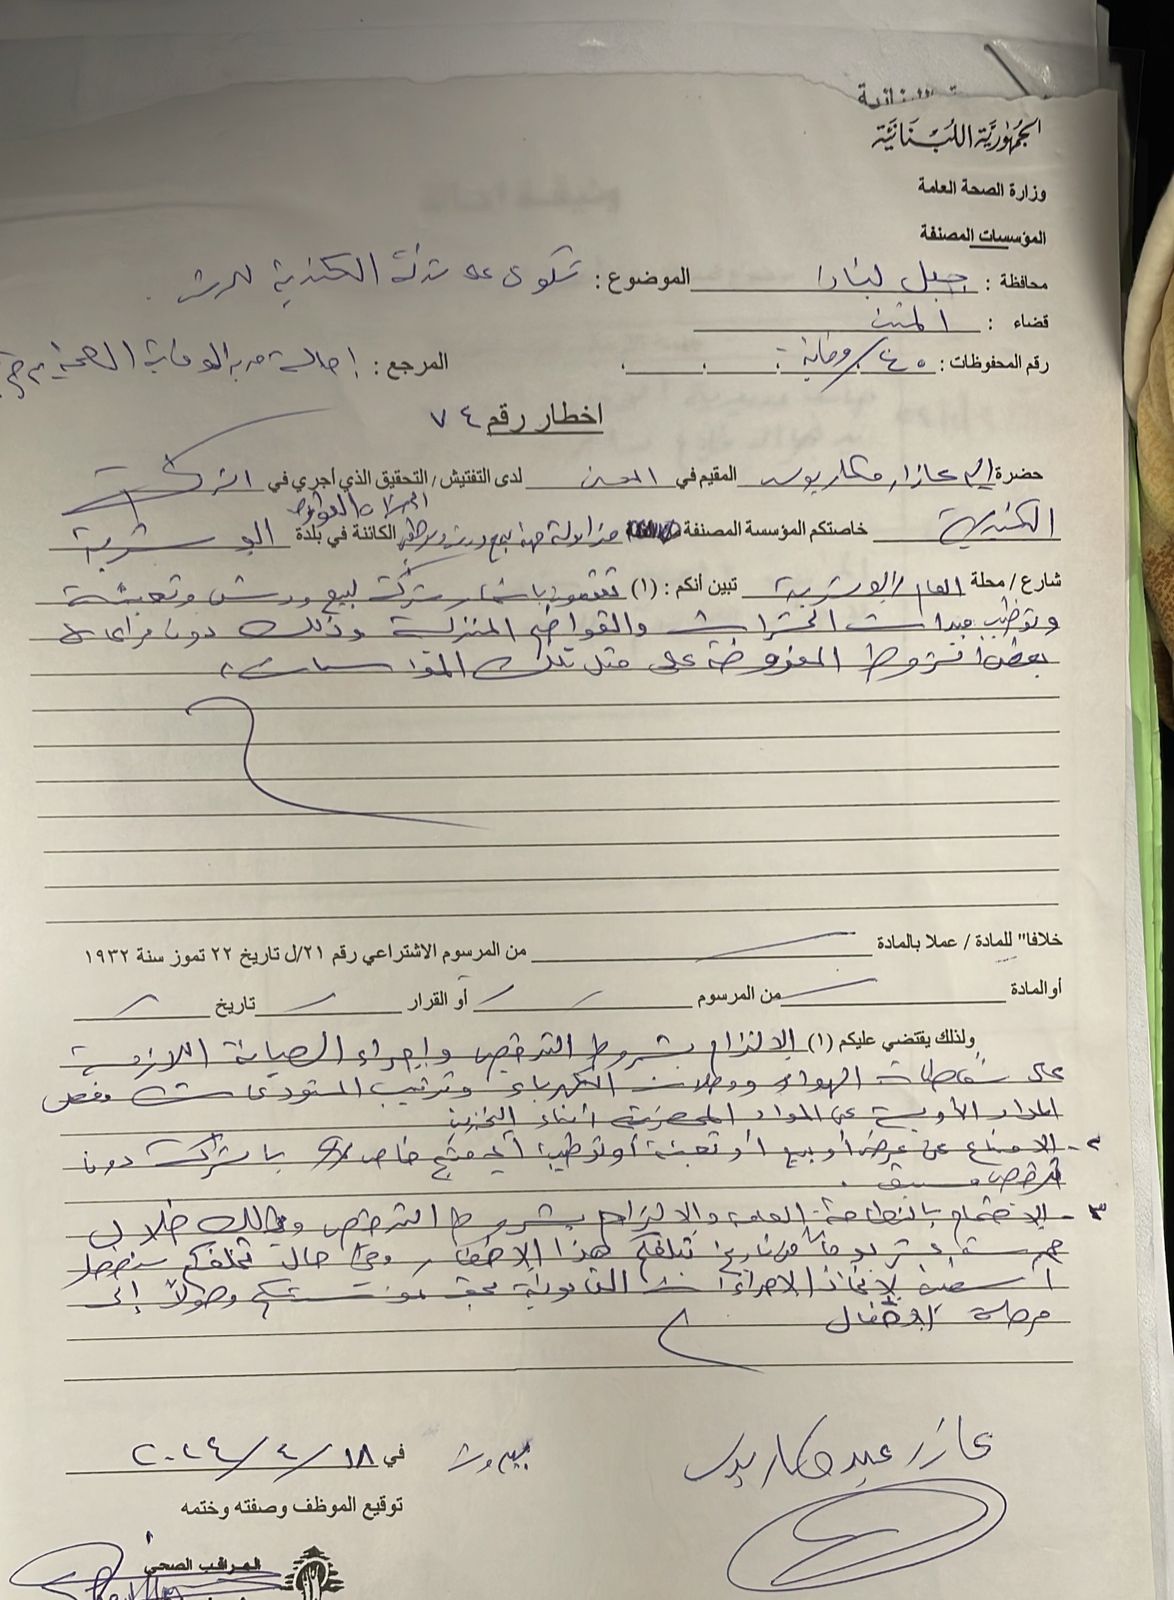 الجمهورية اللبنانية
وزارة الصحة العامة
المؤسسات المصنفة
محافظة : جبل لبنان الموضوع : شكوى على شركة الكندية للرش
قضاء : المتن
رقم المحفوظات : ٤٥ / وقاية المرجع : إحالة الوقاية الصحية
اخطار رقم ٧٤
حضرة عازار مكاريوس المقيم في لدى التفتيش / التحقيق الذي أجري في الشركة
الكندية خاصتكم المؤسسة المصنفة مزاولة مهنة بيع ورش الحشرات القوارض الكائنة في بلدة البوشرية
شارع / محلة العام / البوشرية تبين أنكم : (١) تقومون باستثمار شركة لبيع ورش وتعبئة
وتوظيب مبيدات الحشرات والقوارض المنزلية وذلك دون مراعاة
بعض الشروط المفروضة على مثل تلك المؤسسات.
خلافا" للمادة / عملا بالمادة من المرسوم الاشتراعي رقم ٢١/ل تاريخ ٢٢ تموز سنة ١٩٣٢
أو المادة من المرسوم أو القرار تاريخ
ولذلك يقتضي عليكم (١) الالتزام بشروط الترخيص وإجراء الصيانة اللازمة
على شفاطات الهواء ووصلات الكهرباء وترتيب المستودعات وفصل
المواد الأولية عن المواد المحضرة أثناء التخزين
٢ - الامتناع عن عرض أو بيع أو تعبئة أو توظيب أي منتج خاص بالشركة دون
ترخيص مسبق .
٣ - الاهتمام بالنظافة العامة والالتزام بشروط الترخيص وذلك خلال
خمسة عشر يوماً من تاريخ تبلغكم هذا الإخطار وفي حال تخلفكم سنضطر
آسفين لاتخاذ الاجراءات القانونية بحق مؤسستكم وصولاً إلى
مرحلة الإقفال
عازار عيد مكاريوس
بيروت في ١٨/٤/٢٠٢٤
توقيع الموظف وصفته وختمه
المراقب الصحي